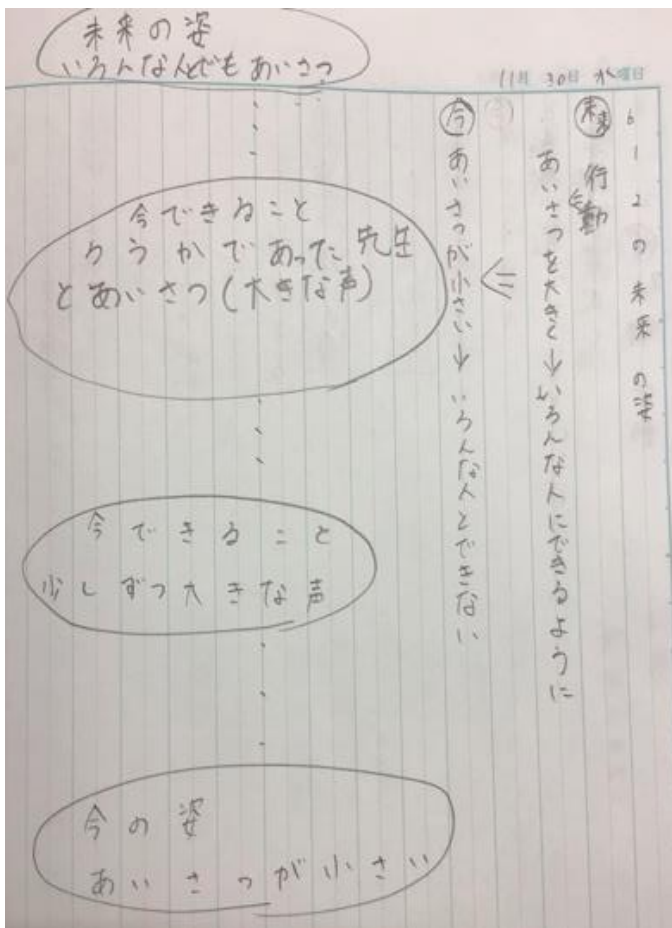 11月 30日 水曜日
612の未来の姿
未来 行動
あいさつを大きく→いろんな人にできるように
今 あいさつが小さい→いろんな人とできない
未来の姿
いろんな人とでもあいさつ
今できること
ろうかであった先生
とあいさつ(大きな声)
今できること
少しずつ大きな声
今の姿
あいさつが小さい